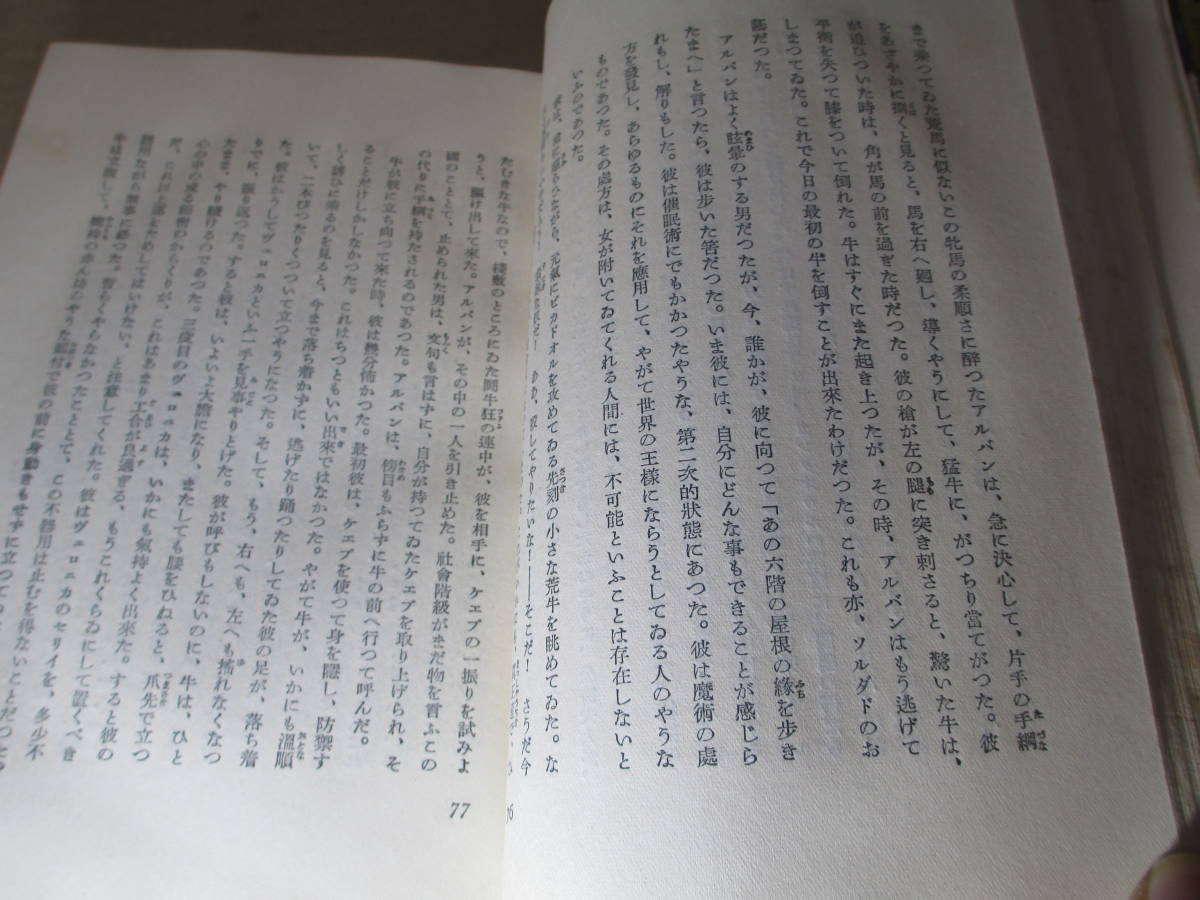 まで乗つてゐた駑馬に似ないこの牝馬の柔順さに醉つたアルバンは、急に決心して、片手の手綱
をあざやかに捌くと見ると、馬を右へ廻し、導くやうにして、猛牛に、がつちり當てがつた。彼
が追ひついた時は、角が馬の前を過ぎた時だつた。彼の槍が左の腿に突き刺さると、驚いた牛は、
平衡を失つて膝をついて倒れた。牛はすぐにまた起き上つたが、その時、アルバンはもう逃げて
しまつてゐた。これで今日の最初の牛を倒すことが出來たわけだつた。これも亦、ソルダドのお
蔭だつた。
アルバンはよく眩暈のする男だつたが、今、誰かが、彼に向つて「あの六階の屋根の緣を步き
たまへ」と言つたら、彼は步いた筈だつた。いま彼には、自分にどんな事もできることが感じら
れもし、解りもした。彼は催眠術にでもかかつたやうな、第二次的狀態にあつた。彼は魔術の處
方を發見し、あらゆるものにそれを應用して、やがて世界の王樣にならうとしてゐる人のやうな
ものであつた。その處方は、女が附いてゐてくれる人間には、不可能といふことは存在しないと
いふのであつた。
ひながら、元氣にピカドオルを攻めてゐる先刻の小さな荒牛を眺めてゐた。な
だ！ ああ、殺してやりたいな！――そこだ！ さうだ今
76
たむきな牛なので、棧敷のところにゐた鬪牛狂の連中が、彼を相手に、ケエプの一振りを試みよ
うと、驅け出して來た。アルバンが、その中の一人を引き止めた。社會階級がまだ物を言ふこの
國のこととて、止められた男は、文句も言はずに、自分が持つてゐたケエプを取り上げられ、そ
の代りに手綱を持たされるのであつた。アルバンは、傍目もふらずに牛の前へ行つて呼んだ。
牛が彼に立ち向つて來た時、彼は幾分怖かつた。最初彼は、ケエプを使つて身を隱し、防禦す
ることだけしかしなかつた。これはちつともいい出來ではなかつた。やがて牛が、いかにも溫順
しく誘ひに乘るのを見ると、今まで落ち着かずに、逃げたり踊つたりしてゐた彼の足が、落ち着
いて、二本ぴつたりくつついて立つやうになつた。そして、もう、右へも、左へも搖れなくなつ
た。彼はかうしてヴェロニカといふ一手を見事やりとげた。彼が呼びもしないのに、牛は、ひと
りでに、振り返つた。すると彼は、いよいよ大膽になり、またしても腰をひねると、爪先で立つ
たまま、やり續けるのであつた。三度目のヴェロニカは、いかにも氣持よく出來た。すると彼の
心の中の或る祕密のからくりが、これはあまり工合が良過ぎる、もうこれくらゐにして置くべき
だ、これ以上運をためしてはいけない、と注意してくれた。彼はヴェロニカのセリイを、多少不
ながら無事に終つた。暫らくやらなかつたこととて、この不器用は止むを得ないことだつた。
のやうな顏付で彼の前に身動きもせずに立つて
77